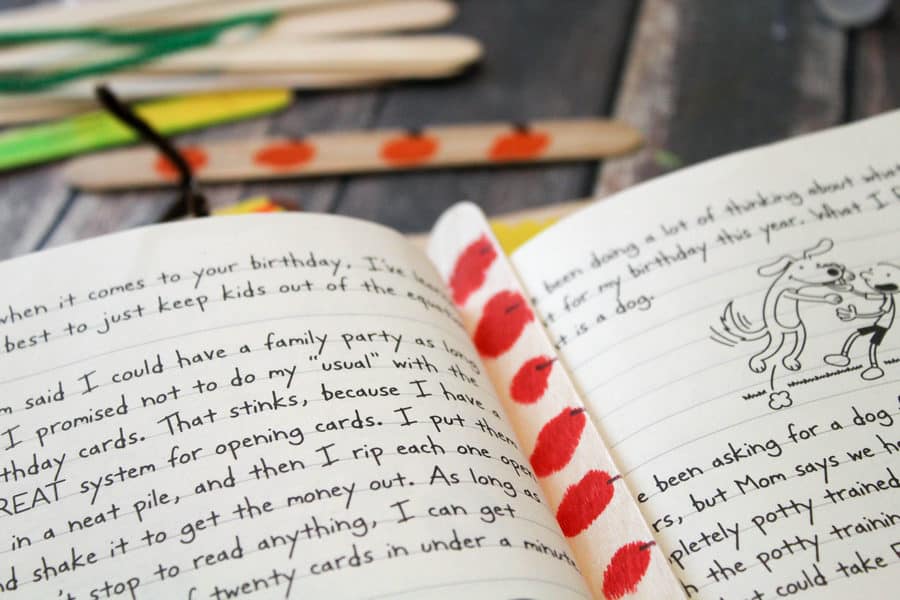 when it comes to your birthday, I've
best to just keep kids out of the
said I could have a family party as long
I promised not to do my "usual" with the
cards. That stinks, because I have a
system for opening cards. I put them
in a neat pile, and then I rip each one open
shake it to get the money out. As long as
stop to read anything, I can get
twenty cards in under a minute
been doing a lot of thinking about what
for my birthday this year. What I
is a dog.
been asking for a dog
but Mom says we
potty trained
the potty training
could take